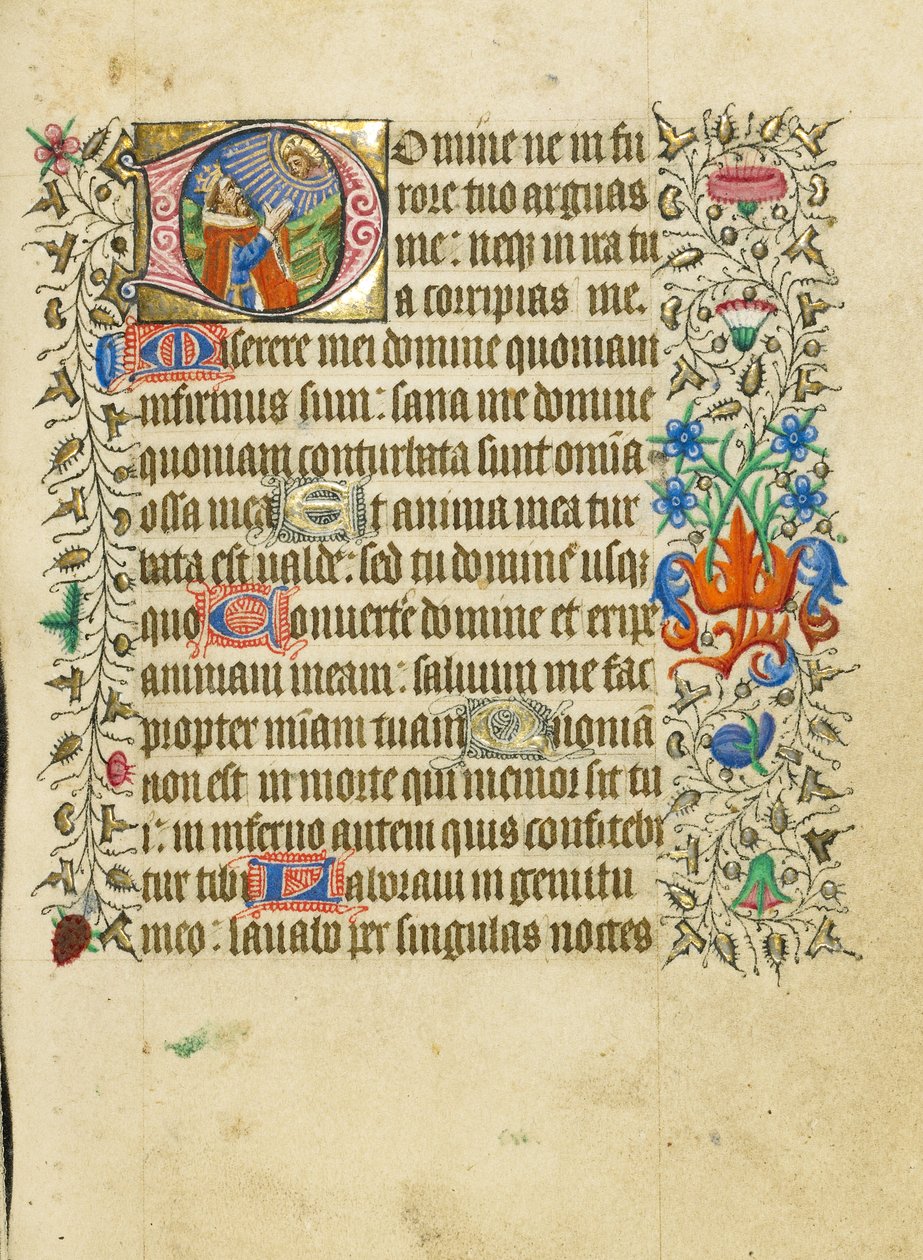 Domine ne in fu
rore tuo arguas
me: neqz in ira tu
a corripias me.
Miserere mei domine quoniam
infirmus sum: sana me domine
quoniam conturbata sunt omīa
ossa mea Et anima mea tur
bata est ualde: sed tu domine usqz
quo Conuerte domine et eripe
animam meam: saluum me fac
propter mīam tuam Quoniā
non est in morte qui memor sit tu
i: in inferno autem quis confitebi
tur tibi Laboraui in gemitu
meo: lauabo per singulas noctes